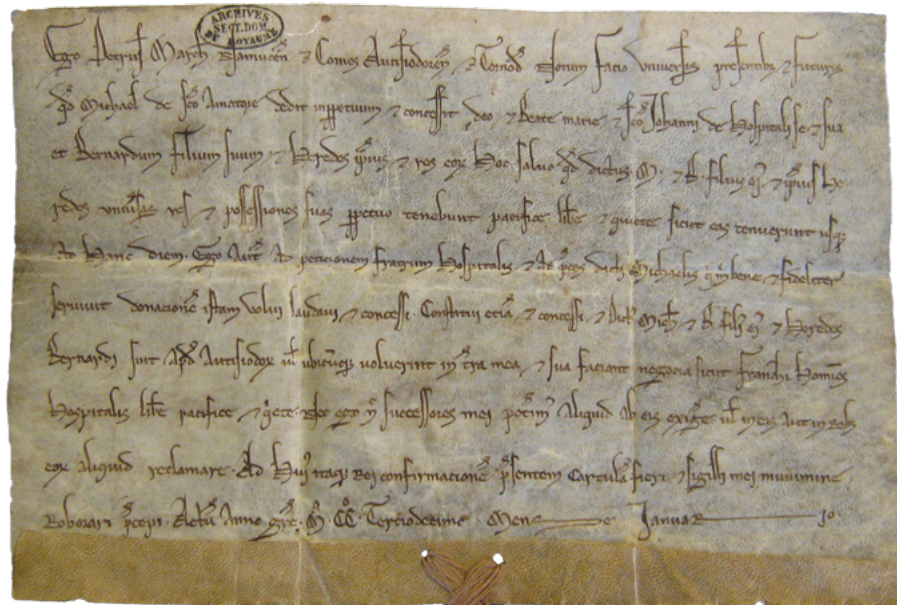 ARCHIVES
SECT. DOM.
DU ROYAUME
Ego Petrus March Namucen̄ & Comes Autisiodoren̄ & Tornod Notum facio universis presentibꝫ & futuris
qd Michael de sco Amatore dedit inppetuum & concessit deo & Beate marie & sco Johanni de Hospitali se & sua
et Bernardum filium suum & Heredes ipsius & res eoꝝ Hoc salvo qd dictus M. & B. filius ei & ipsius He
redes res & possessiones suas ppetuo tenebunt pacifice libe & quiete sicut eas tenuerunt usqꝫ
Ad Hanc diem. Ego Aut Ad peticionem fratrum Hospitalis & Ad pces dicti Michaelis bene & fideliter
servivit donacione istam volui laudavi & concessi. Constitui etia & concessi & dict Mich & B fili ei & Heredes
Bernardi sint Apd Autisiodoꝝ ul ubicuqꝫ voluerint in tra mea & sua faciant negocia sicut franchi Homies
Hospitalis libe pacifice & qete ego successores mei poterim Aliquid Ab eis exige ul in eis Aut in rebꝫ
eoꝝ Aliquid reclamare. Ad Hui itaqꝫ Rei confirmacione psentem Cartula fieri & sigilli mei munimine
Roborari pcepi. Actu Anno gre. M. CC. Terciodecimo Mense Januario